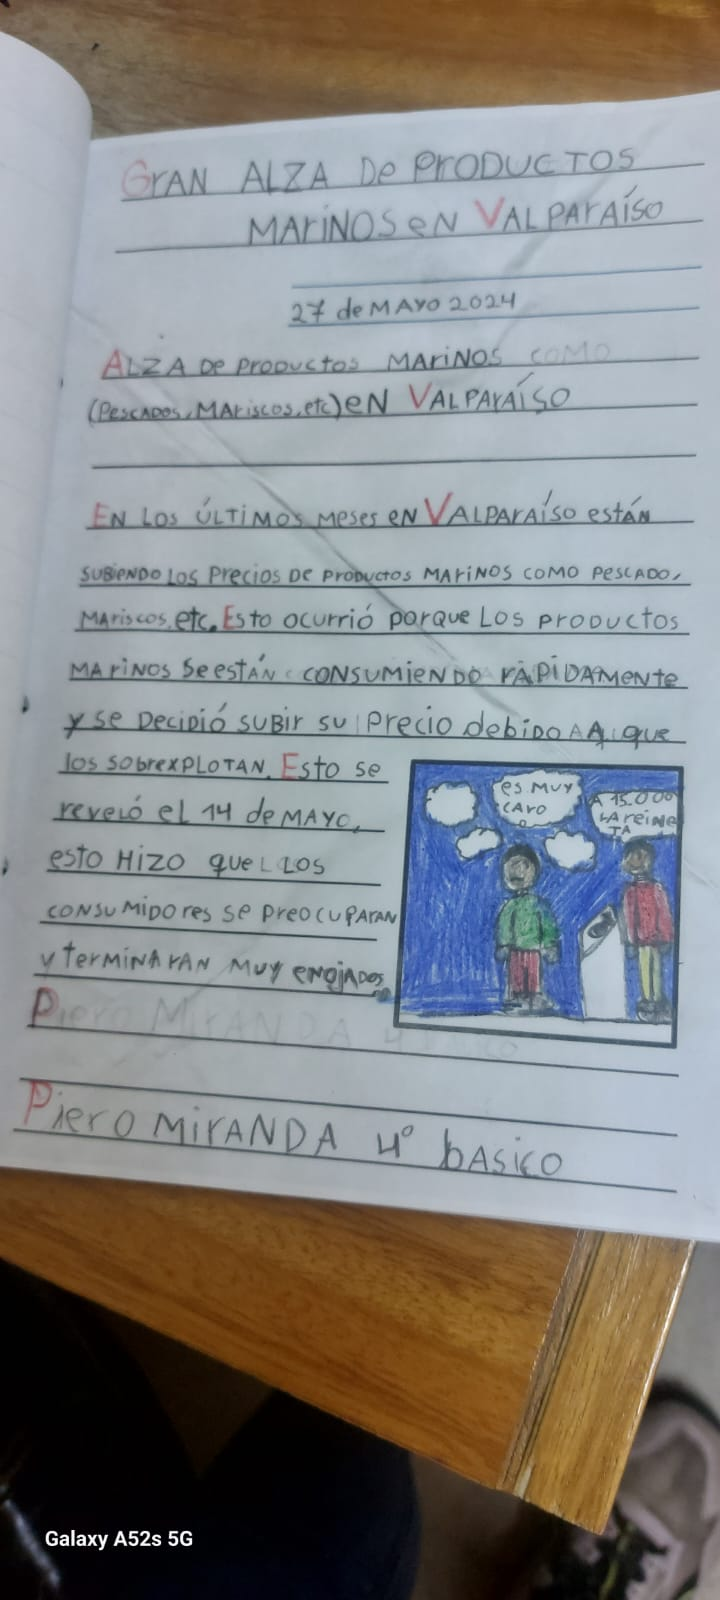 GrAN ALZA De PrODUCTOS
MAriNOS eN VALPArAÍSO
27 de MAYO 2024
ALZA De PrODUCTOS MAriNOS COMO
(PesCADOS, MAriscos, etc) eN VALPArAÍSO
EN LOS ÚLTIMOS Meses eN VALPArAÍSO estÁN
SUBieNDO LOS Precios De PrODUCTOS MAriNOS COMO PesCADO,
MAriscos, etc. Esto ocurrió porque LOS PrODUCTOS
MAriNOS Se estÁN CONSUMieNDO rÁPiDAMeNte
y se DeciDió SUBir SU Precio debiDO A que
los SObrexPLOTAN. Esto se
reveló el 14 de MAYO,
esto HiZO que LOS
CONSUMiDOres se PreOCUPArAN
y terMiNArAN MUY eNOjADOS
es MUY
CArO
A 15.000
LA reiNe
TA
Piero MirANDA 4 BASiCO
Piero MirANDA 4° bASiCO